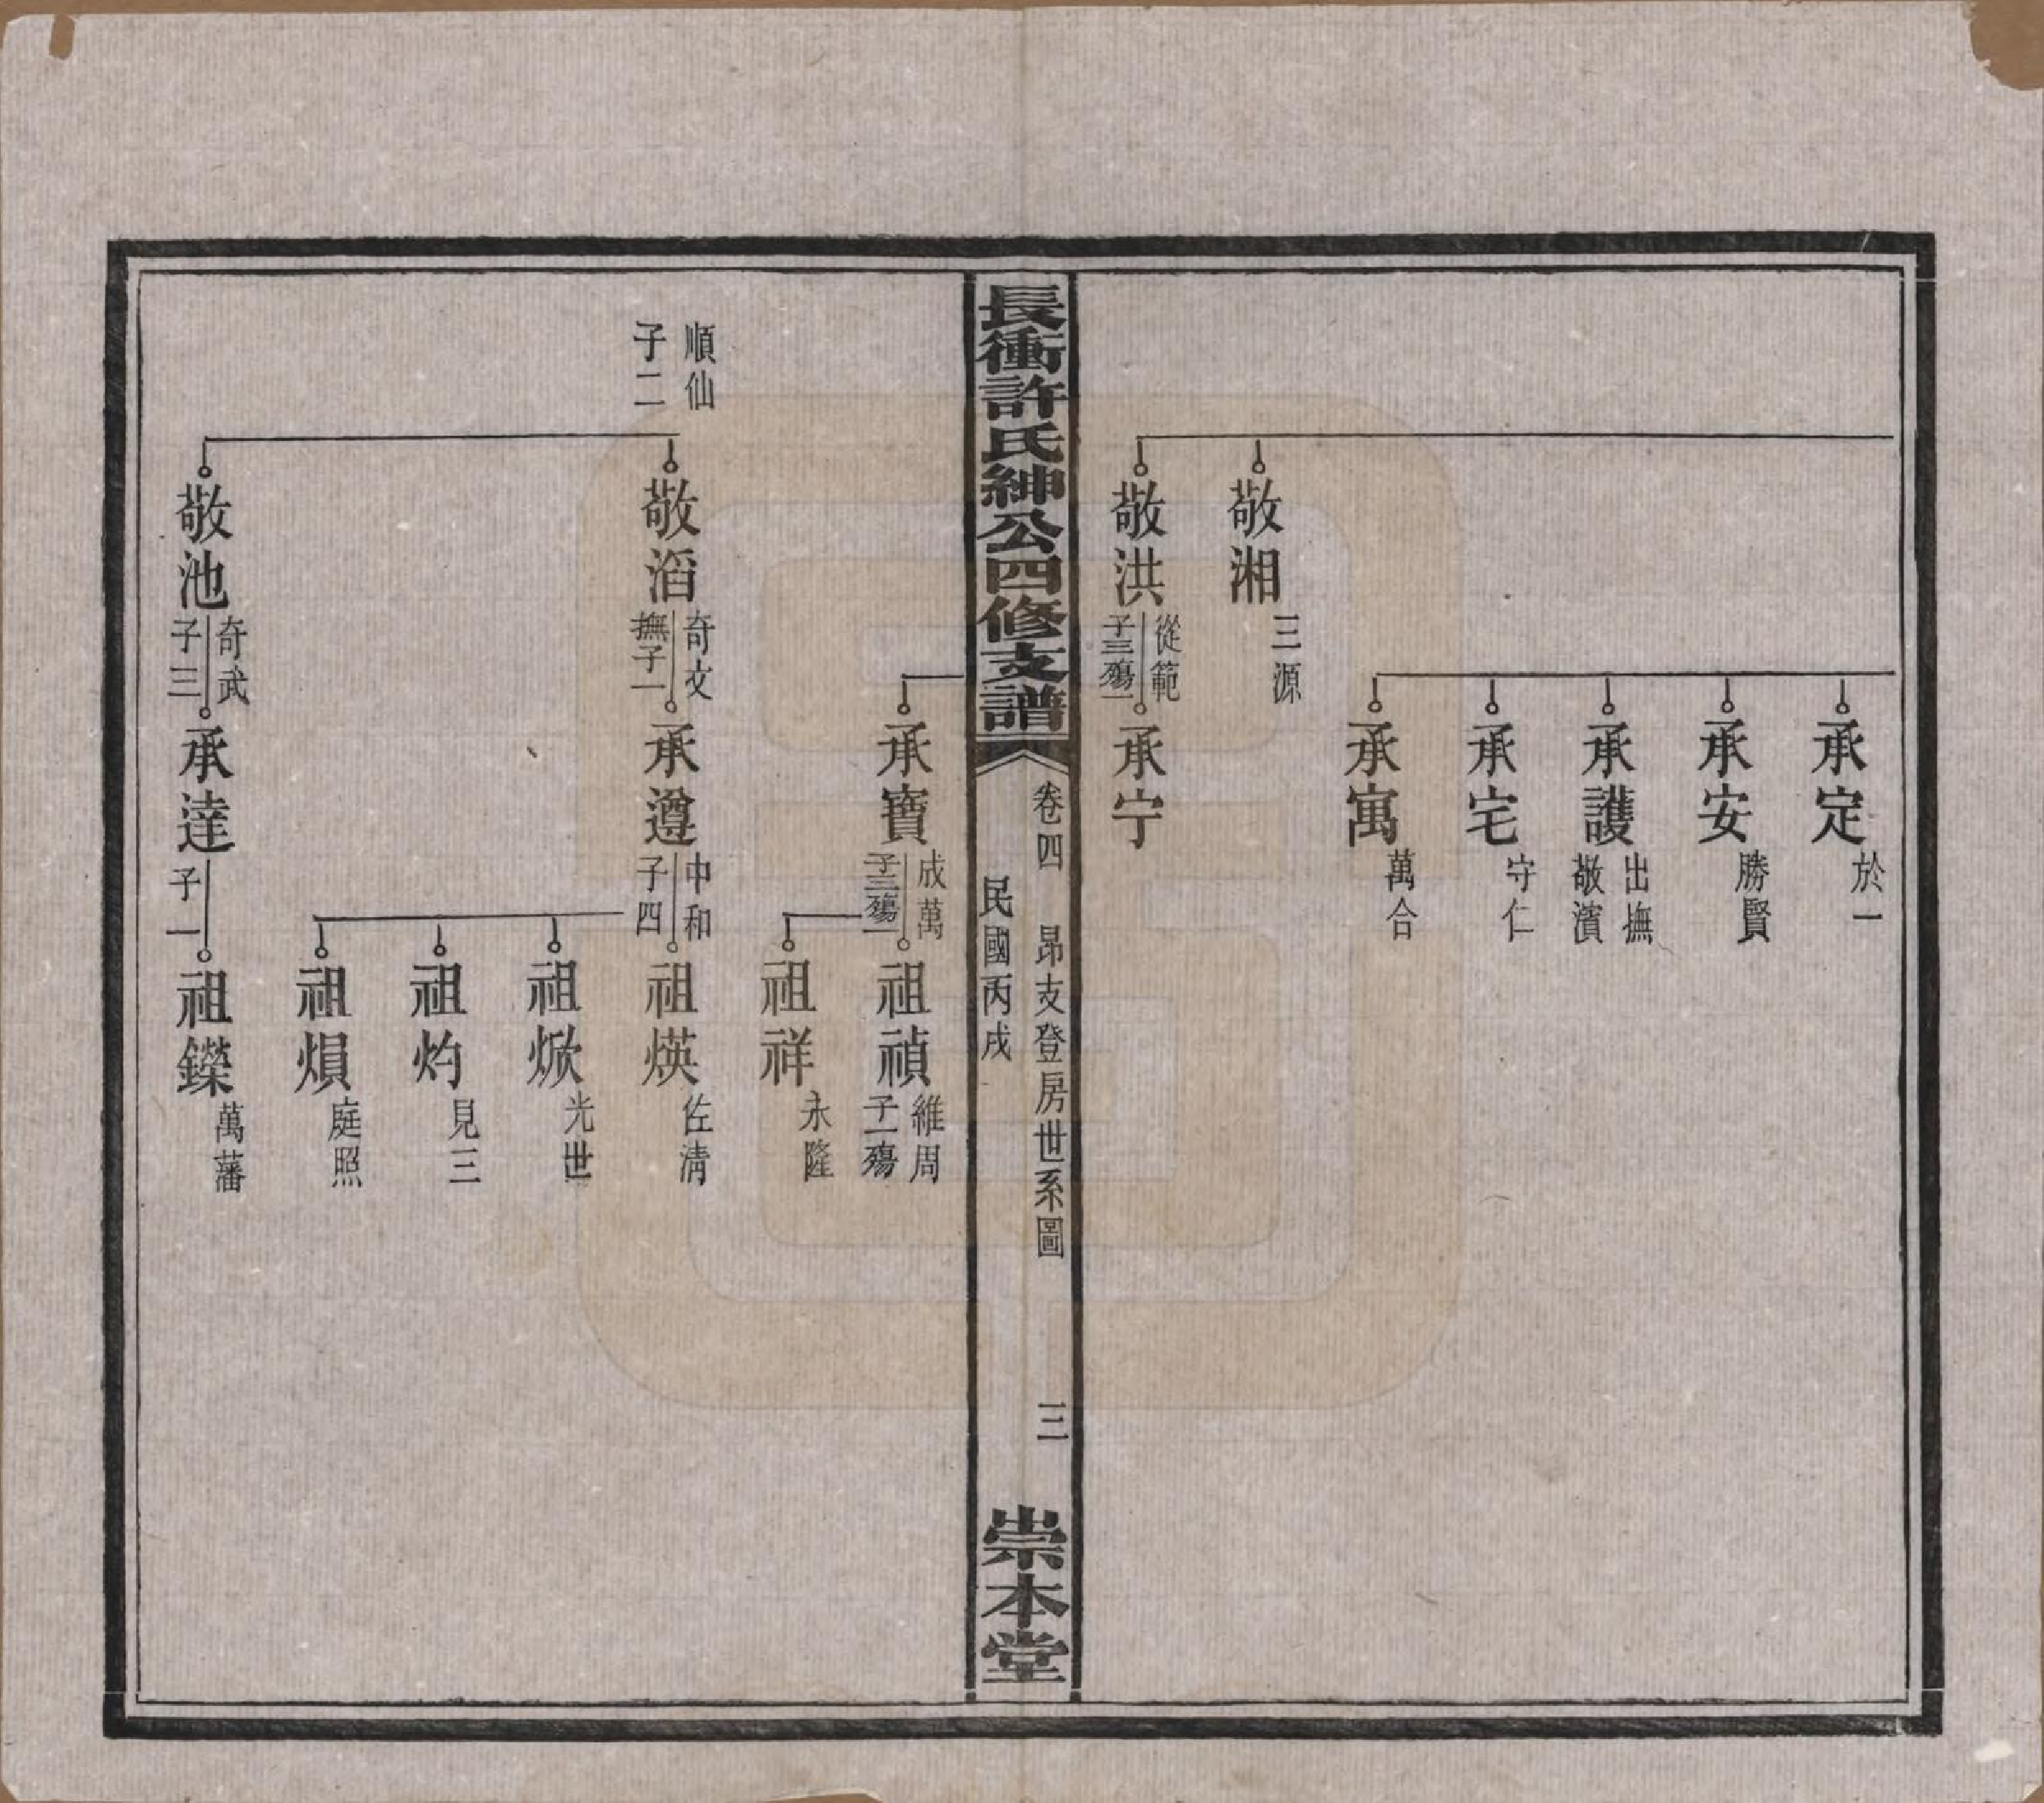 承定
於一
承安
勝賢
承護
出撫
敬濱
承宅
守仁
承寓
萬合
敬湘
三源
敬洪
從範
子三殤一
承宁
長衝許氏紳公四修支譜
卷四 昂支登房世系圖 三
民國丙戌
崇本堂
承寶
成萬
子三殤一
祖禎
維周
子一殤
祖祥
永隆
順仙
子二
敬滔
奇文
撫子一
承遵
中和
子四
祖煐
佐清
祖焮
光世
祖灼
見三
祖熉
庭照
敬池
奇武
子三
承達
子一
祖鑅
萬藩